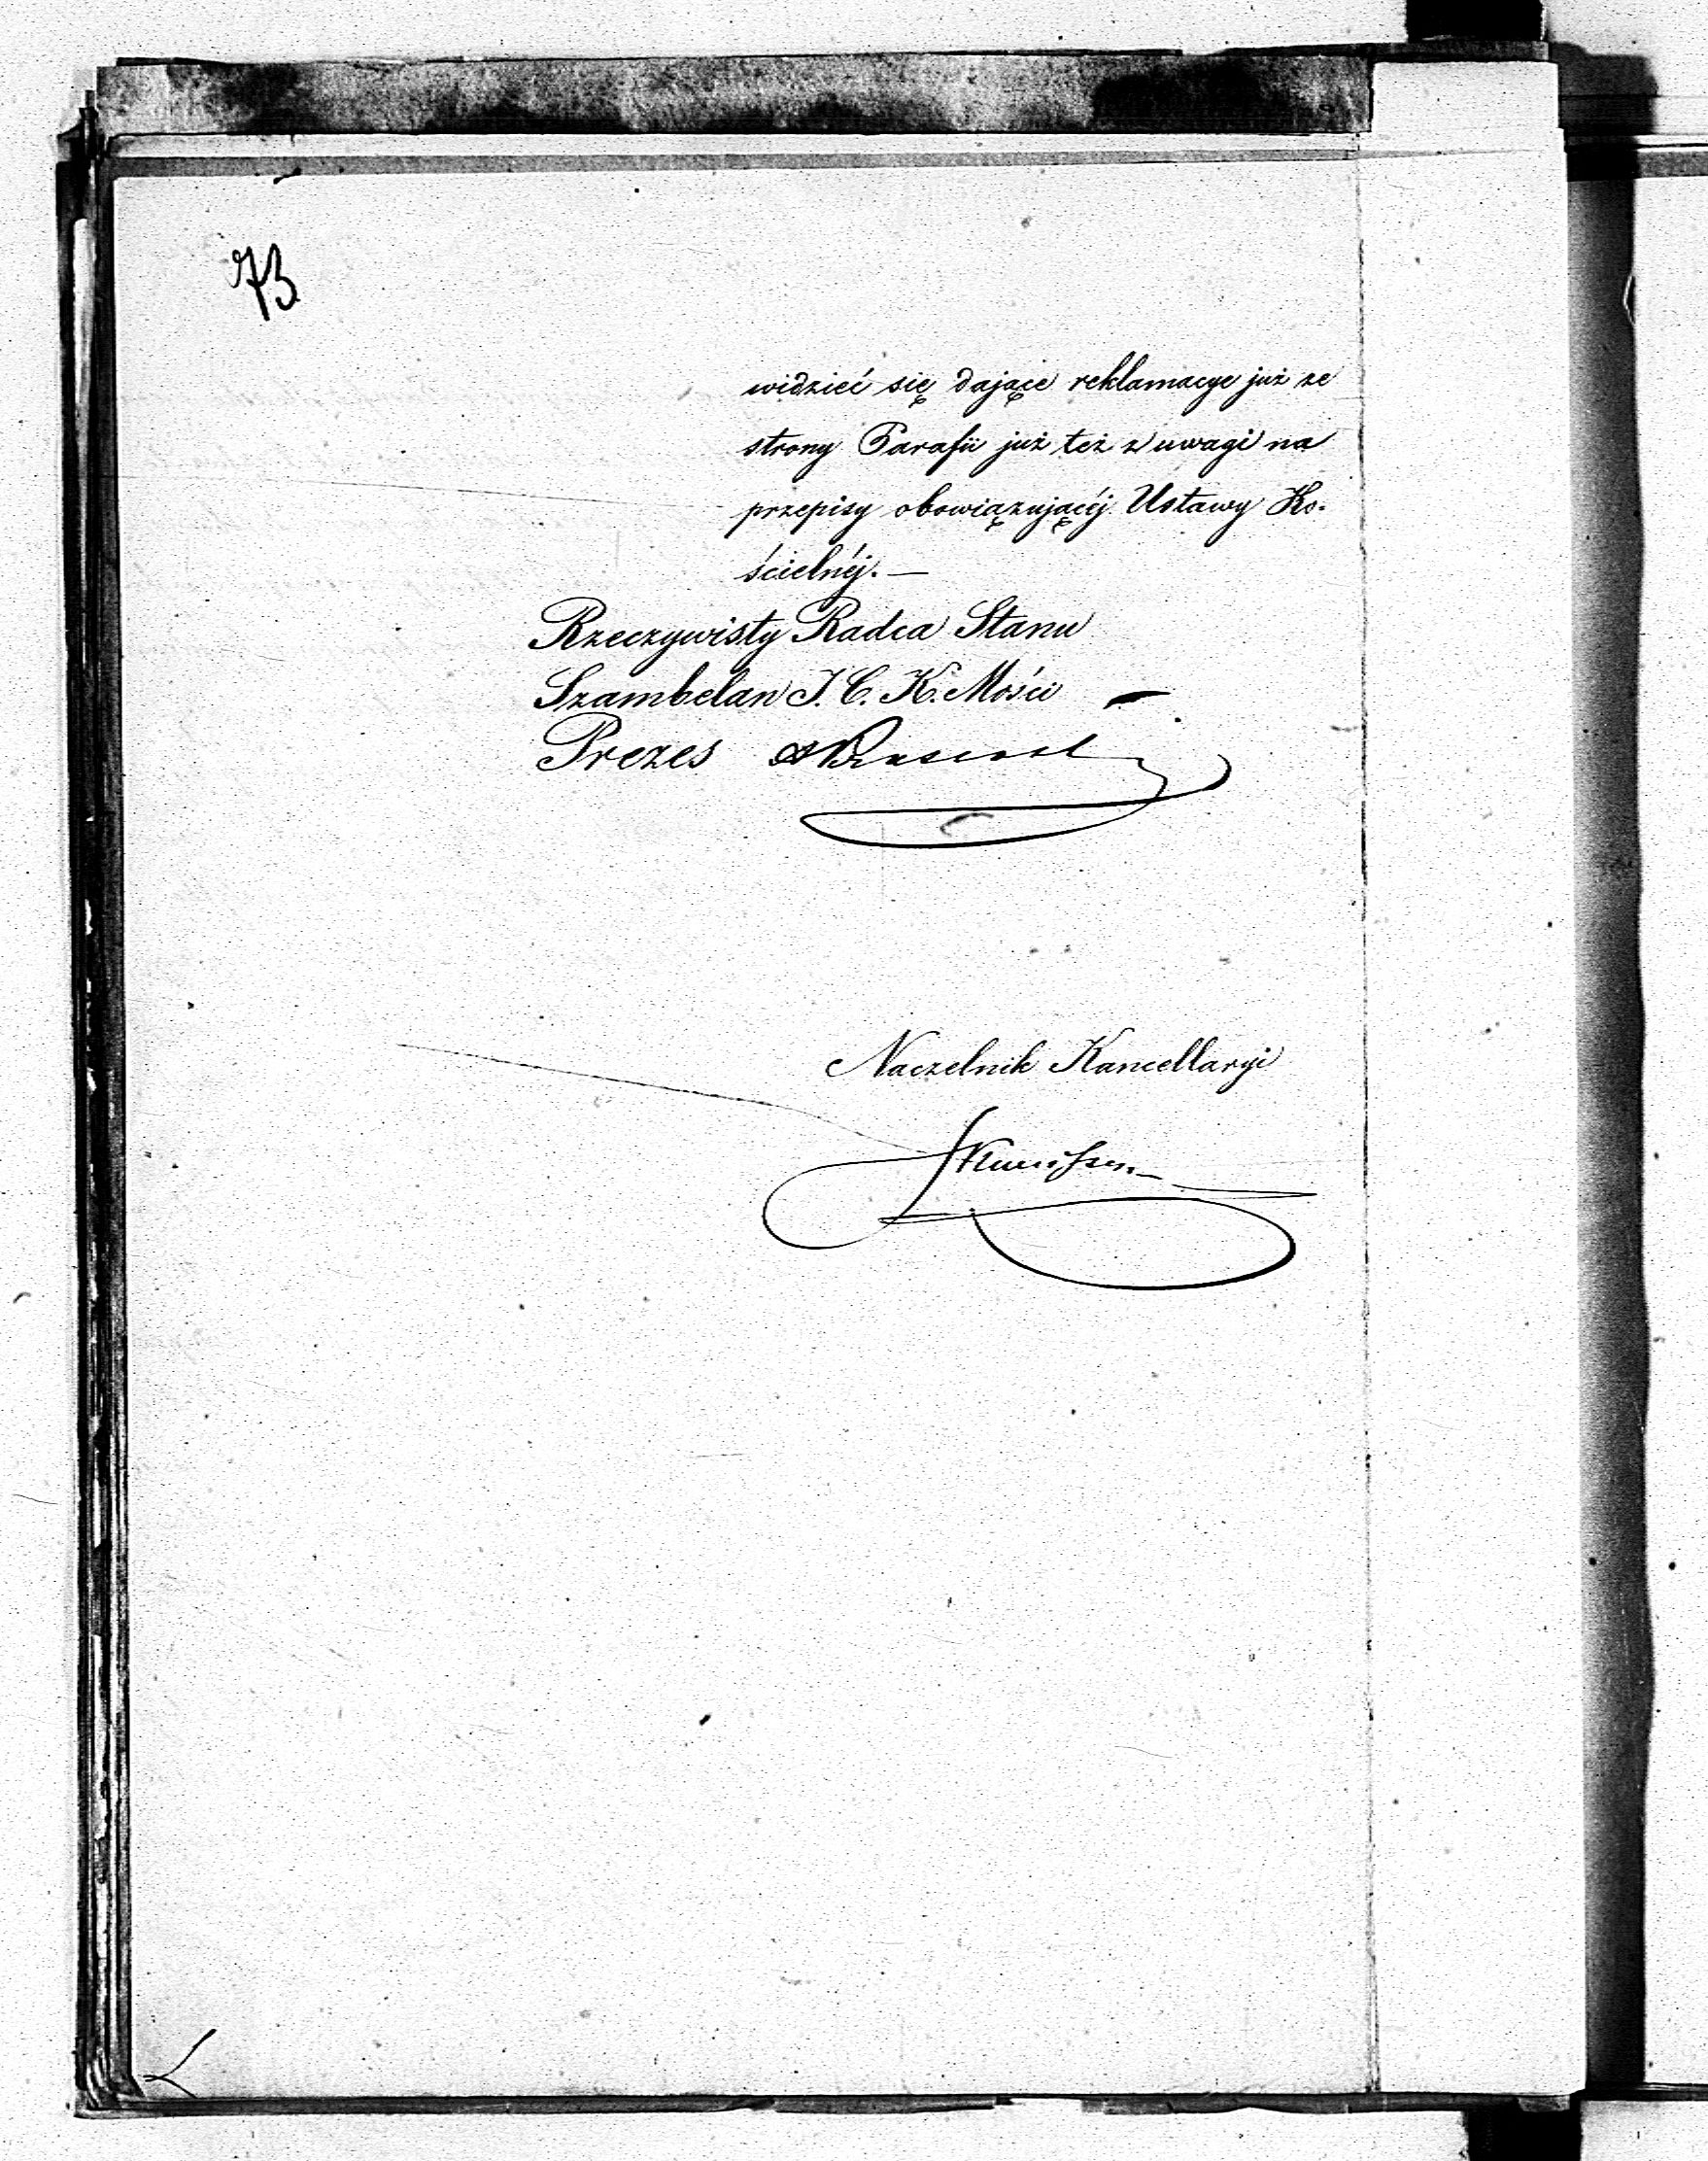 73
widzieć się dające reklamacye już ze
strony Parafii już też z uwagi na
przepisy obowiązującéj Ustawy Ko-
ścielnéj. —
Rzeczywisty Radca Stanu
Szambelan J. C. K. Mości
Prezes
Naczelnik Kancellaryi